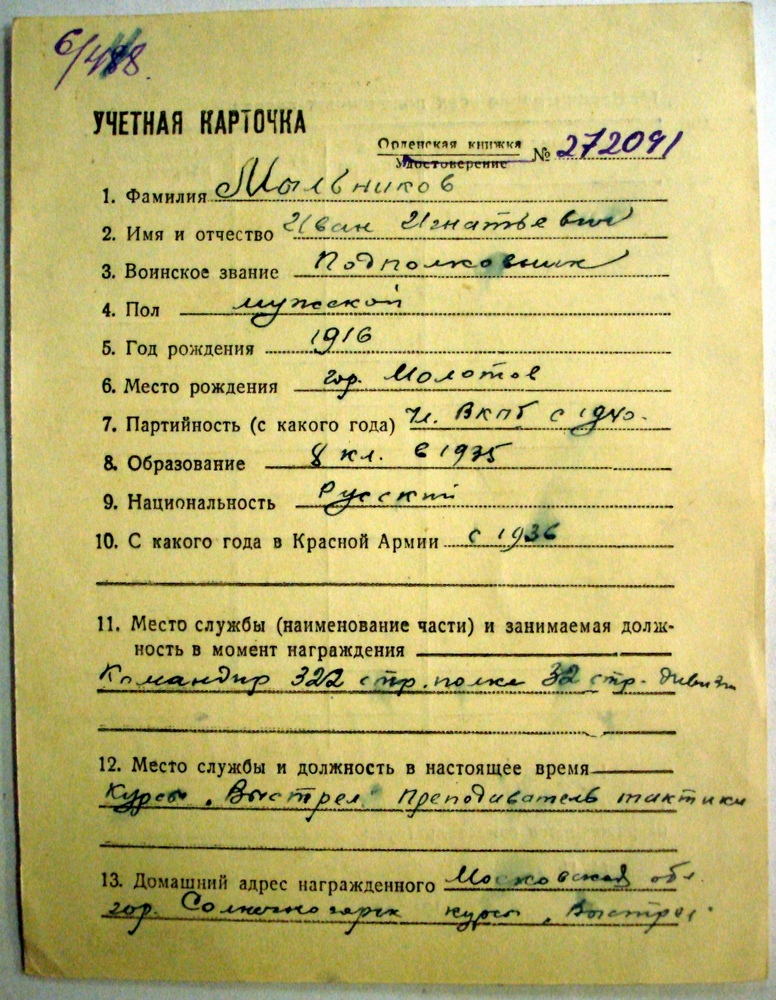 6/488.
УЧЕТНАЯ КАРТОЧКА
Орденская книжка
Удостоверение № 272091
1. Фамилия Мыльников
2. Имя и отчество Иван Игнатьевич
3. Воинское звание Подполковник
4. Пол мужской
5. Год рождения 1916
6. Место рождения гор. Молотов
7. Партийность (с какого года) Чл. ВКПб с 1940.
8. Образование 8 кл. в 1935
9. Национальность Русский
10. С какого года в Красной Армии с 1936
11. Место службы (наименование части) и занимаемая долж-
ность в момент награждения
Командир 322 стр. полка 32 стр. дивизии
12. Место службы и должность в настоящее время
Курсы "Выстрел" Преподаватель тактики
13. Домашний адрес награжденного Московская обл.
гор. Солнечногорск курсы "Выстрел"